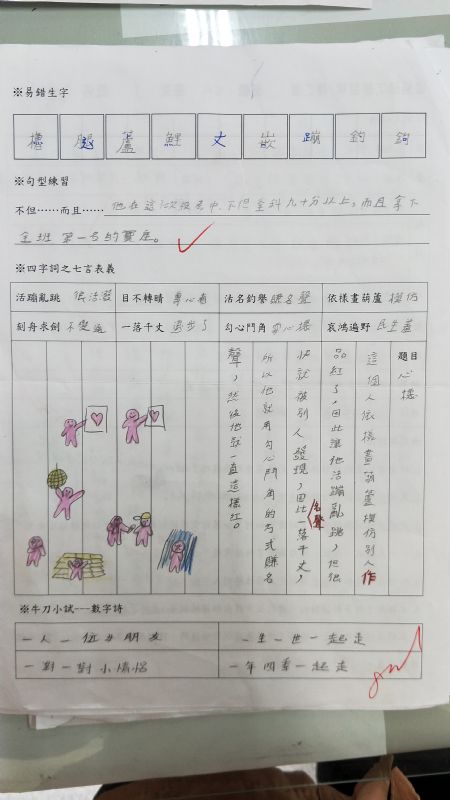 ※易錯生字
櫓 腿 蘆 鯉 丈 嵌 蹦 釣 鉤
※句型練習
不但……而且……他在這次段考中,不但全科九十分以上,而且拿下
全班第一名的寶座。
※四字詞之七言表義
活蹦亂跳 很活潑 目不轉睛 專心看 沽名釣譽 賺名聲 依樣畫葫蘆 模仿
刻舟求劍 不變通 一落千丈 退步了 勾心鬥角 哀鴻遍野
題目
心機
這個人依樣畫葫蘆模仿別人作
品紅了,因此讓他活蹦亂跳,但很
快就被別人發現,因此名聲一落千丈,
所以他就用勾心鬥角的方式賺名
聲,然後他就一直這樣紅。
※牛刀小試---數字詩
一人一伍為朋友 一生一世一起走
一對一對小情侶 一年四季一起走